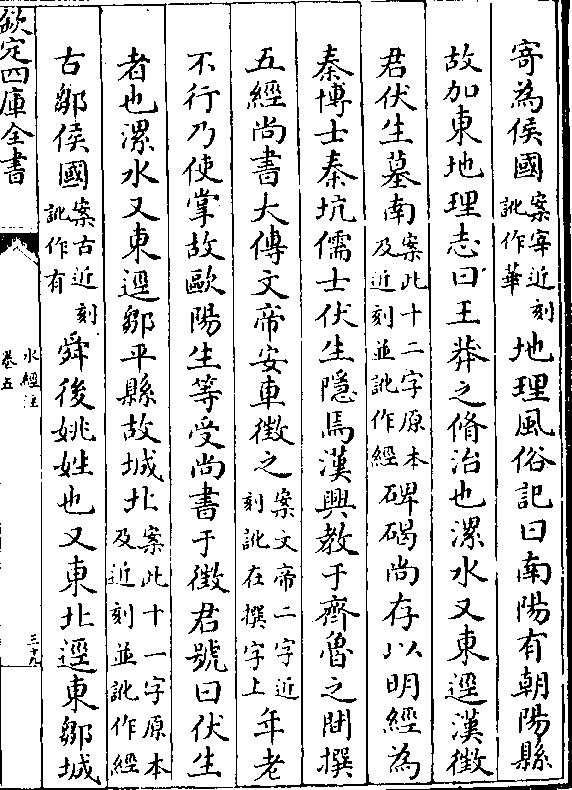 寄為侯國案寄近刻訛作華地理風俗記曰南陽有朝陽縣
故加東地理志曰王莽之脩治也漯水又東逕漢徵
君伏生墓南案此十二字原本及近刻並訛作經碑碣尚存以明經為
秦博士秦坑儒士伏生隱焉漢興教于齊魯之間撰
五經尚書大傳文帝安車徵之案文帝二字近刻訛在撰字上年老
不行乃使掌故歐陽生等受尚書于徵君號曰伏生
者也漯水又東逕鄒平縣故城北案此十一字原本及近刻並訛作經
古鄒侯國案古近刻訛作有舜後姚姓也又東北逕東鄒城
欽定四庫全書
水經注
卷五
三十九